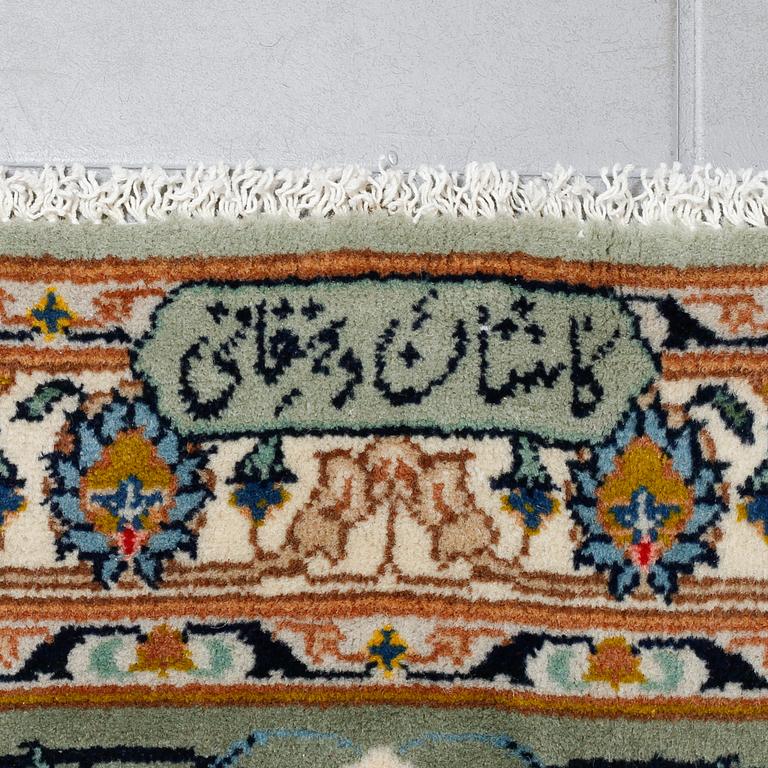 کاشان دهقانی